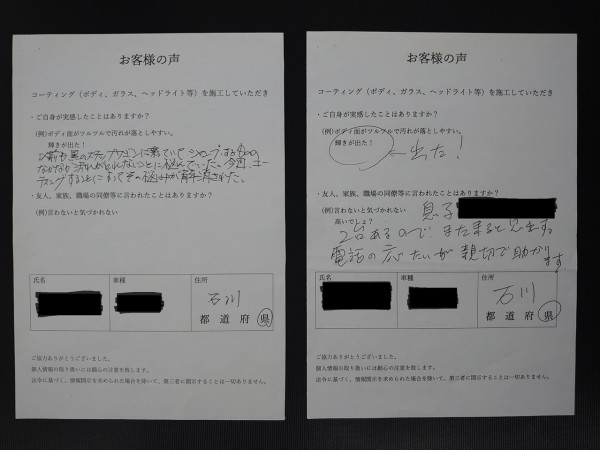 お客様の声
コーティング（ボディ、ガラス、ヘッドライト等）を施工していただき
・ご自身が実感したことはありますか？
(例)ボディ面がツルツルで汚れが落としやすい。
輝きが出た！
以前も黒のステップワゴンに乗っていてシャンプーするものの
なかなか汚れがとれないことに悩んでいた。今回、コー
ティングすることによってその悩みが解消された。
・友人、家族、職場の同僚等に言われたことはありますか？
(例)言わないと気づかれない
氏名
車種
住所
石川
都 道 府 県
ご協力ありがとうございました。
個人情報の取り扱いには細心の注意を致します。
法令に基づく、情報開示を求められた場合を除いて、第三者に開示することは一切ありません。
お客様の声
コーティング（ボディ、ガラス、ヘッドライト等）を施工していただき
・ご自身が実感したことはありますか？
(例)ボディ面がツルツルで汚れが落としやすい。
輝きが出た！
出た！
・友人、家族、職場の同僚等に言われたことはありますか？
(例)言わないと気づかれない 息子
高いでしょ？
2台あるので、また来ると思います。
電話の応たいが親切で助かります
氏名
車種
住所
石川
都 道 府 県
ご協力ありがとうございました。
個人情報の取り扱いには細心の注意を致します。
法令に基づく、情報開示を求められた場合を除いて、第三者に開示することは一切ありません。